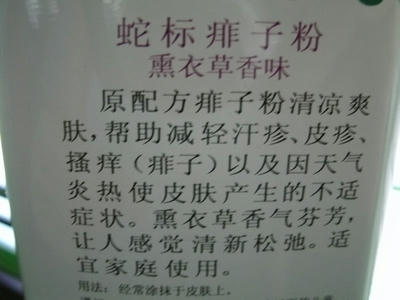 蛇标痱子粉
熏衣草香味
原配方痱子粉清凉爽
肤,帮助减轻汗疹、皮疹、
搔痒(痱子)以及因天气
炎热使皮肤产生的不适
症状。熏衣草香气芬芳,
让人感觉清新松弛。适
宜家庭使用。
用法：经常涂抹于皮肤上。